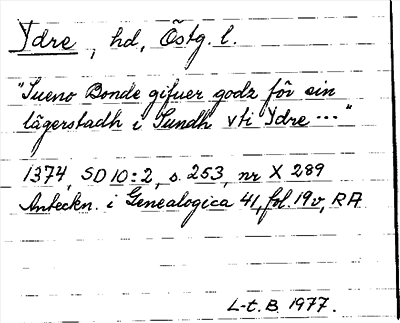 Ydre, hd, Östg. l.
"Sueno Bonde gifuer godz för sin
lägerstadh i Sundh vti Ydre ..."
1374, SD 10:2, s. 253, nr X 289
Anteckn. i Genealogica 41, fol. 19v, RA
L-t. B. 1977.